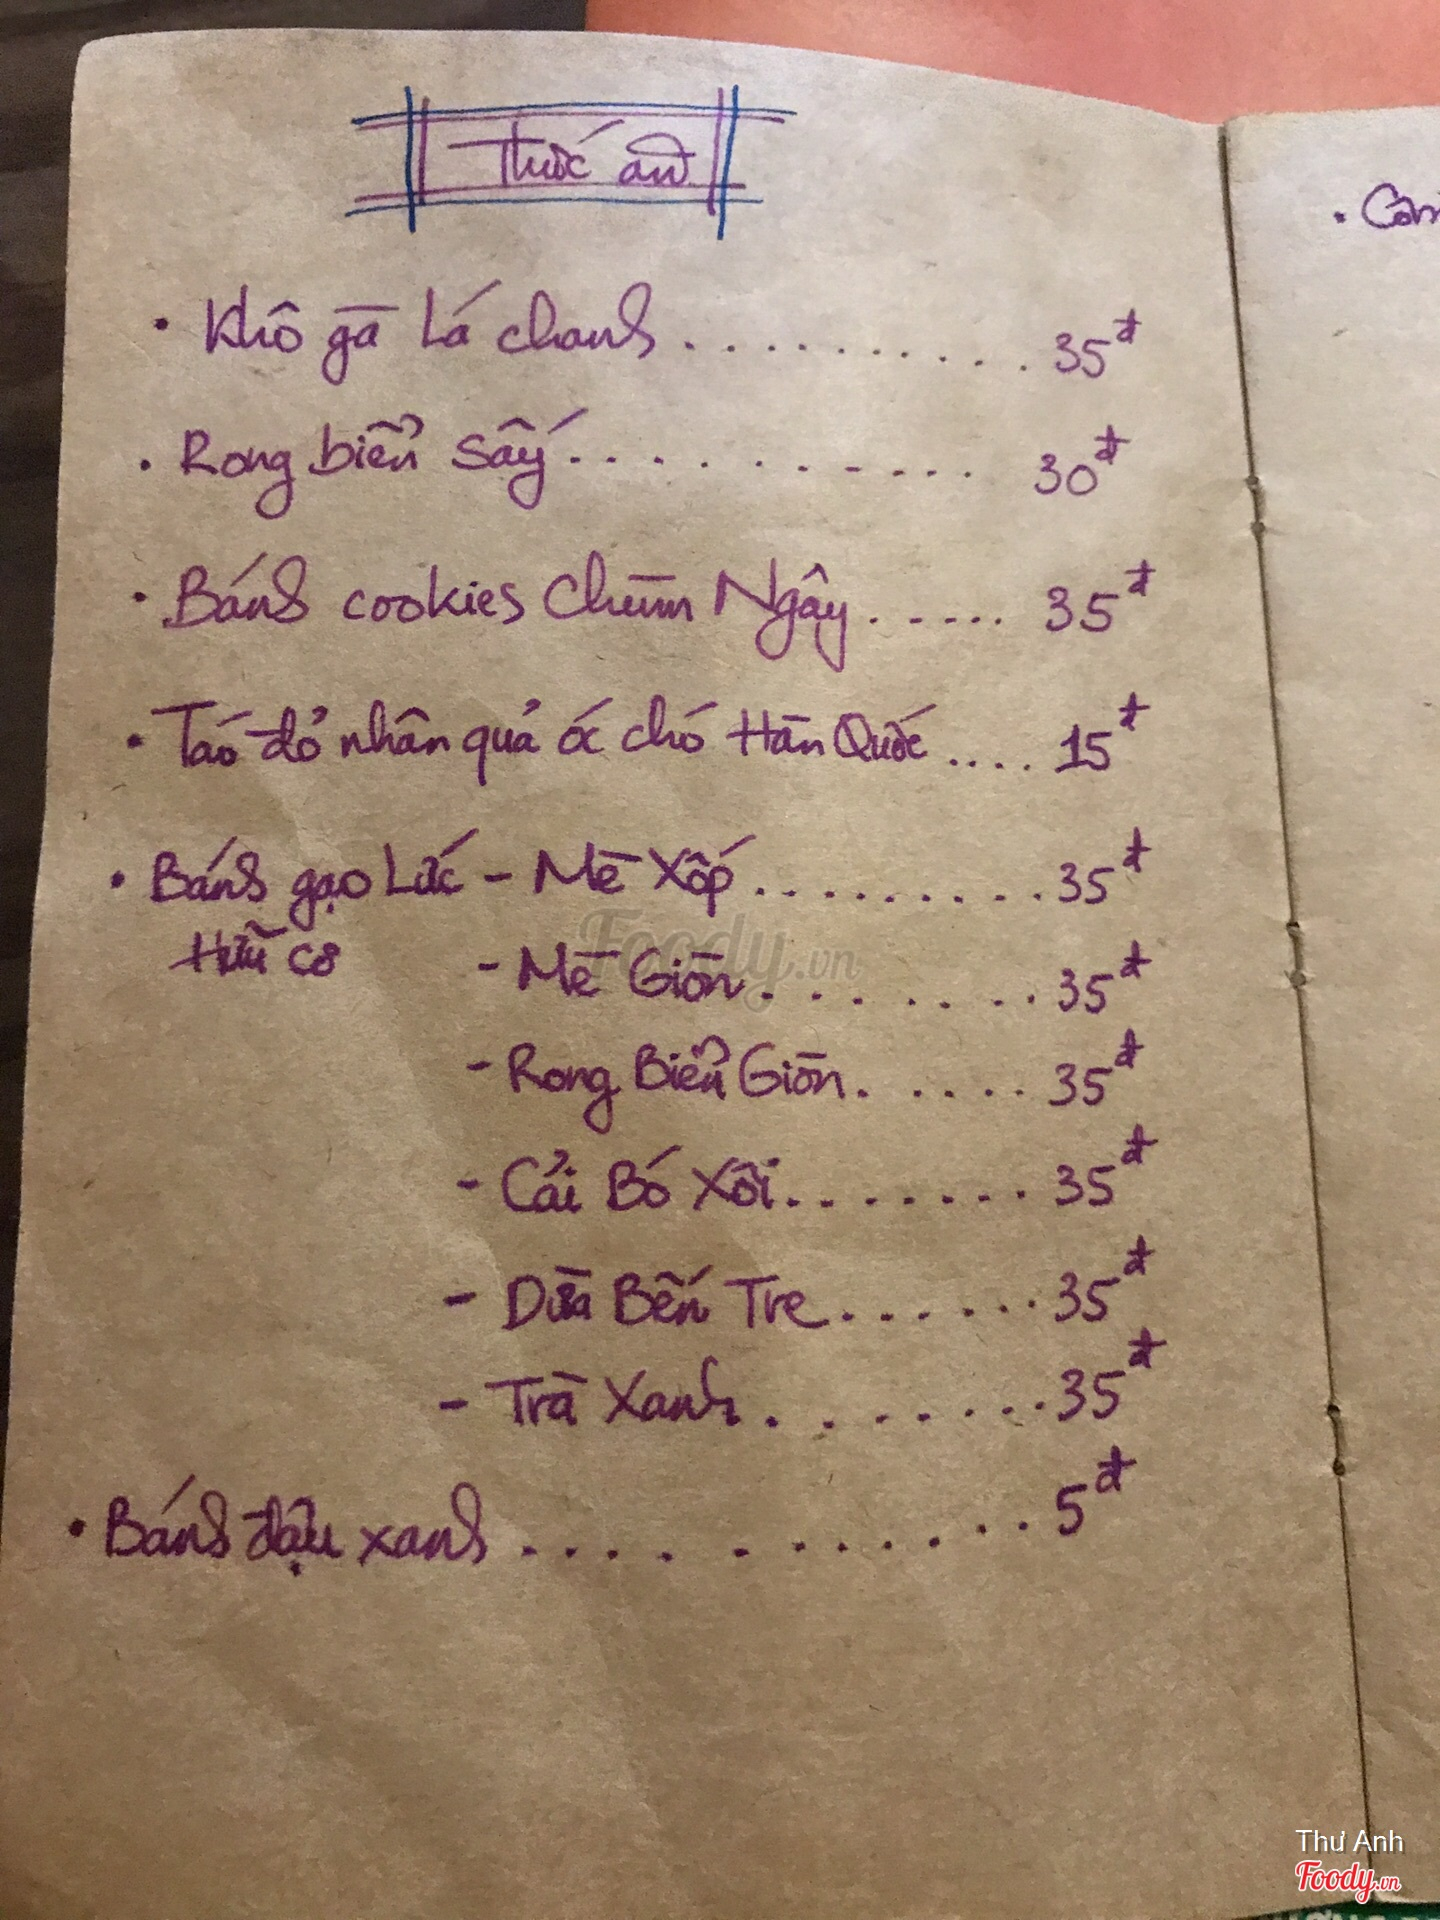 Thức ăn
• Khô gà Lá chanh .......... 35đ
• Rong biển sấy ........... 30đ
• Bánh cookies Chùm Ngây ..... 35đ
• Táo đỏ nhân quả óc chó Hàn Quốc .... 15đ
• Bánh gạo Lứt - Mè Xốp ......... 35đ
Hữu cơ
- Mè Giòn ........ 35đ
- Rong Biển Giòn ...... 35đ
- Cải Bó Xôi ........ 35đ
- Dừa Bến Tre ....... 35đ
- Trà Xanh ........ 35đ
• Bánh đậu xanh ........... 5đ
Foody.vn
Thư Anh
Foody.vn